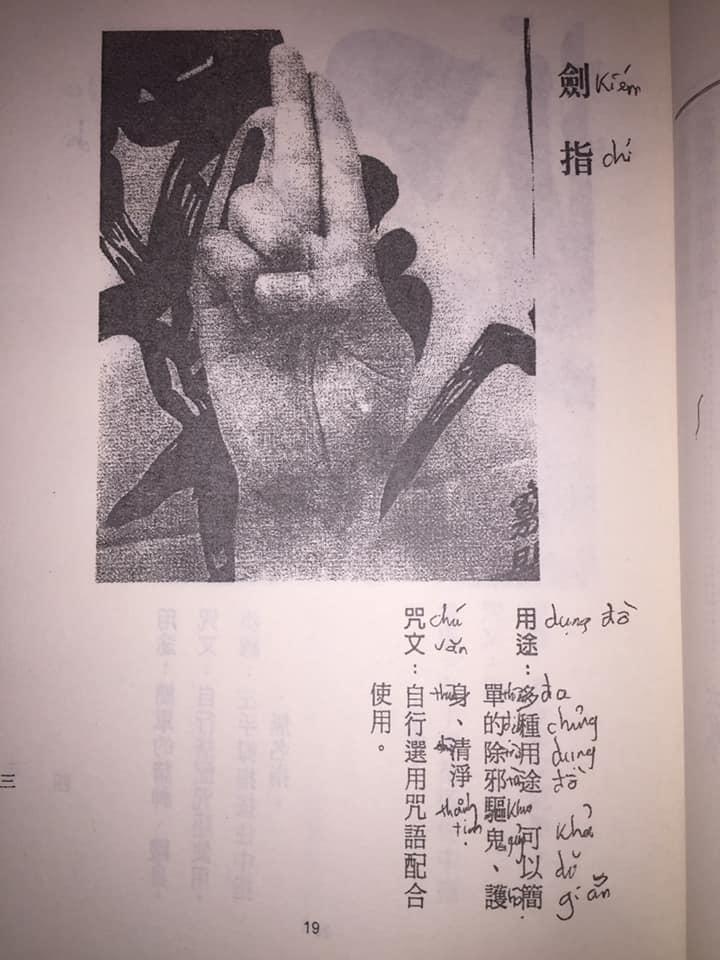 劍指
Kiếm
chỉ
用途：多種用途 可以簡
單的除邪驅鬼、護
身、清淨
dụng đồ
đa
chủng
dụng
đồ
khả
dĩ
giản
thanh
tịnh
咒文：自行選用咒語配合
使用。
chú
văn
三
19